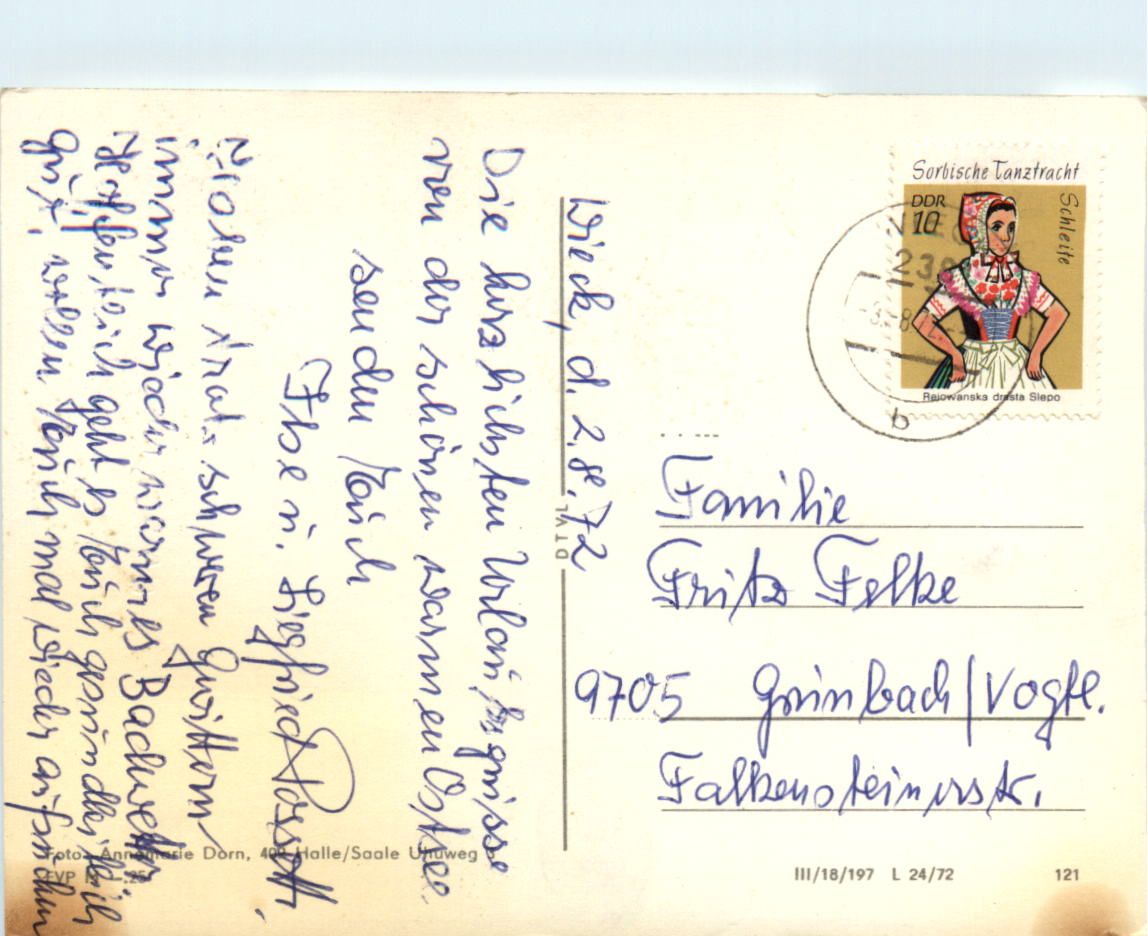 Wieck, d. 2.8.72
Die herzlichsten Urlaubsgrüsse
von der schönen warmen Ostsee
senden Euch
Ilse u. Siegfried
Trotz schweren Gewittern
immer wieder warmes Badewetter
Hoffentlich geht es Euch gesundheitlich
gut, wollen Euch mal wieder aufsuchen
Foto: Annemarie Dorn, 402 Halle/Saale Uhuweg
EVP M -,25
DTVL
Sorbische Tanztracht
Schleife
DDR
10
Rejowanska drasta Slepo
b
Familie
Fritz Felke
9705 Grünbach/Vogtl.
Falkensteinerstr.
III/18/197 L 24/72
121